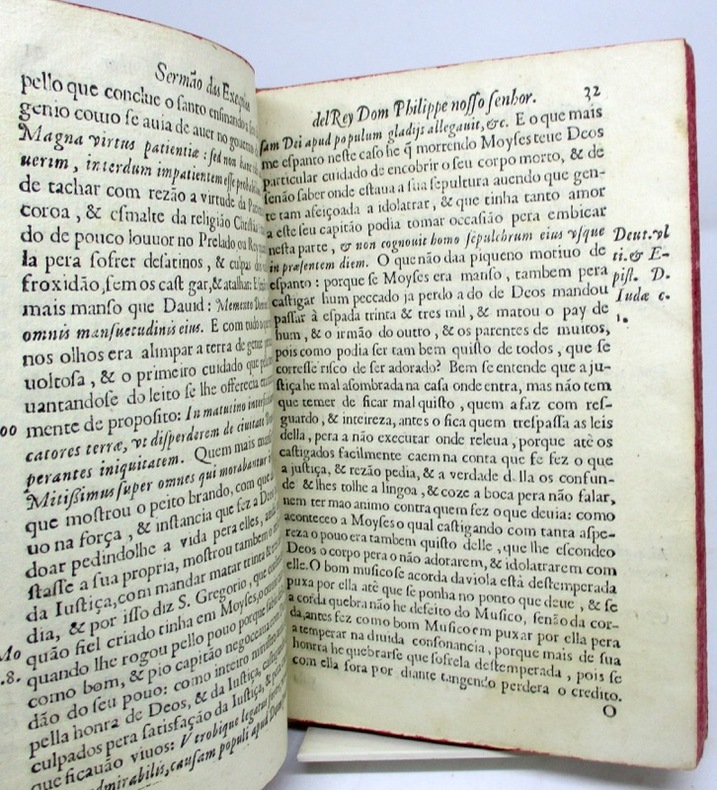 Sermão das Exequias
pello que conclue o santo ensinando
genio como se auia de auer no gouerno
Magna virtus patientiæ : sed non
uerim, interdum impatientem esse
de tachar com rezão a virtude da
coroa , & esmalte da religião Christiã
do de pouco louuor no Prelado ou Rey
la pera sofrer desatinos , & culpas
froxidão, sem os castigar, & atalhar:
mais manso que Dauid : Memento
omnis mansuetudinis eius. E com tudo
nos olhos era alimpar a terra de gente
uoltosa , & o primeiro cuidado que
uantandose do leito se lhe offerecia
00
mente de proposito: In matutino
catores terræ, vt disperderem de ciuitate
perantes iniquitatem. Quem mais
Mitissimus super omnes qui morabantur
que mostrou o peito brando, com que
uo na força , & instancia que fez a
doar pedindolhe a vida pera elles,
stasse a sua propria, mostrou tambem
da Iustiça, com mandar matar trinta &
dia, & por isso diz S. Gregorio , que
Mo
quão fiel criado tinha em Moyses,
.8.
quando lhe rogou pello pouo
como bom, & pio capitão negoceana
dão do seu pouo: como inteiro
pella honra de Deos, & da Iustiça,
culpados pera satisfação da Iustiça, &
que ficauão viuos: Vtrobique legatus
admirabilis, causam populi apud
del Rey Dom Philippe nosso senhor. 32
sam Dei apud populum gladijs allegauit, &c. E o que mais
me espanto neste caso he q̃ morrendo Moyses teue Deos
particular cuidado de encobrir o seu corpo morto, & de
senão saber onde estaua a sua sepultura auendo que gen-
te tam afeiçoada a idolatrar, & que tinha tanto amor
a este seu capitão podia tomar occasião pera embicar
nesta parte , & non cognouit homo sepulchrum eius vsque
in præsentem diem. O que não daa piqueno motiuo de
Deut. vl
ti. & E-
pist. D.
Iudæ c.
1.
espanto : porque se Moyses era manso , tambem pera
castigar hum peccado ja perdoado de Deos mandou
passar à espada trinta & tres mil , & matou o pay de
hum , & o irmão do outro , & os parentes de muitos,
pois como podia ser tam bem quisto de todos , que se
corresse risco de ser adorado? Bem se entende que a ju-
stiça he mal asombrada na casa onde entra, mas não tem
que temer de ficar mal quisto , quem a faz com res-
guardo , & inteireza, antes o fica quem trespassa as leis
della , pera a não executar onde releua , porque atè os
castigados facilmente caem na conta que se fez o que
a justiça , & rezão pedia, & a verdade della os confun-
de & lhes tolhe a lingoa , & coze a boca pera não falar,
nem ter mao animo contra quem fez o que deuia: como
aconteceo a Moyses o qual castigando com tanta aspe-
reza o pouo era tambem quisto delle , que lhe escondeo
Deos o corpo pera o não adorarem, & idolatrarem com
elle. O bom musico se acorda da viola està destemperada
puxa por ella atè que se ponha no ponto que deue , & se
a corda quebra não he defeito do Musico, senão da cor-
da, antes fez como bom Musico em puxar por ella pera
a temperar na diuida consonancia, porque mais de sua
honrra he quebrarse que sofrela destemperada , pois se
com ella fora por diante tangendo perdera o credito.
O